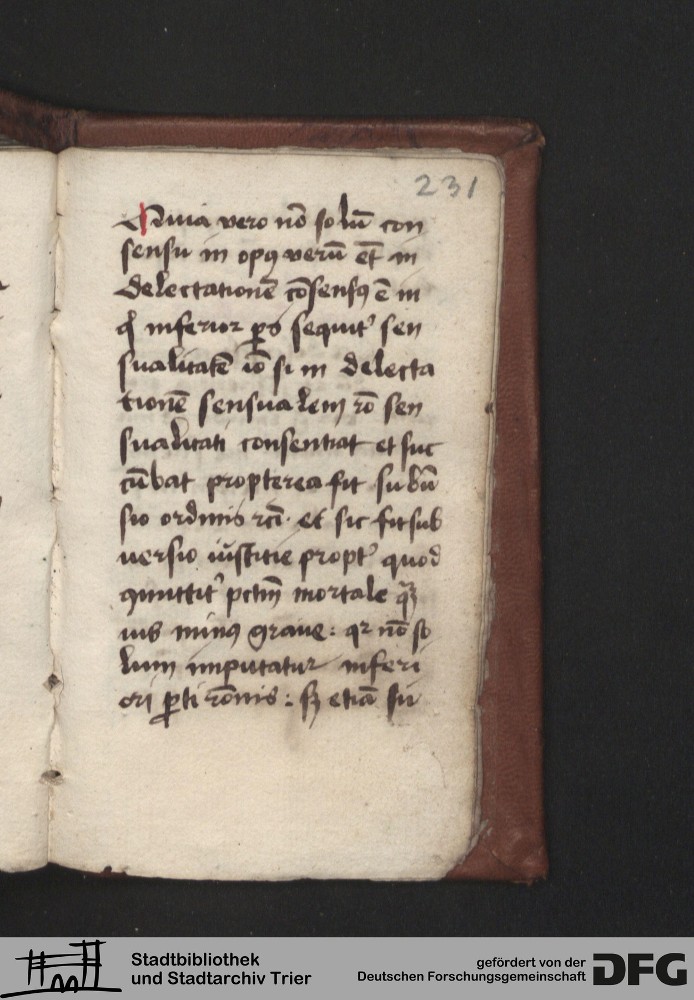 231
Quia vero nō solū con
sensu in opꝰ verū et̄ in
delectationē cōsensꝰ ē in
inferior ꝑs sequit᷑ sen
sualitatē iō si in delecta
tionē sensualem rō sen
sualitati consentiat et suc
cūbat propterea fit subū
sio ordinis rc̄i. et sic fit sub
uersio iusticie propt᷑ quod
pctm̄ mortale qͣꝫ
uis minꝰ graue: qꝛ nō so
lum imputatur inferi
ori ꝑti rōnis: sꝫ etiā su
Stadtbibliothek
und Stadtarchiv Trier
gefördert von der
Deutschen Forschungsgemeinschaft
DFG